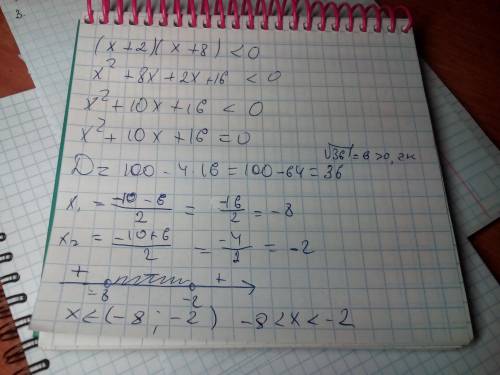 3.
(x+2)(x+8)<0
x²+8x+2x+16<0
x²+10x+16<0
x²+10x+16=0
√36=6>0, 2к
D=100-4·16=100-64=36
x₁=(-10-6)/2=-16/2=-8
x₂=(-10+6)/2=-4/2=-2
+ +
-8 -2
x<(-8;-2) -8<x<-2